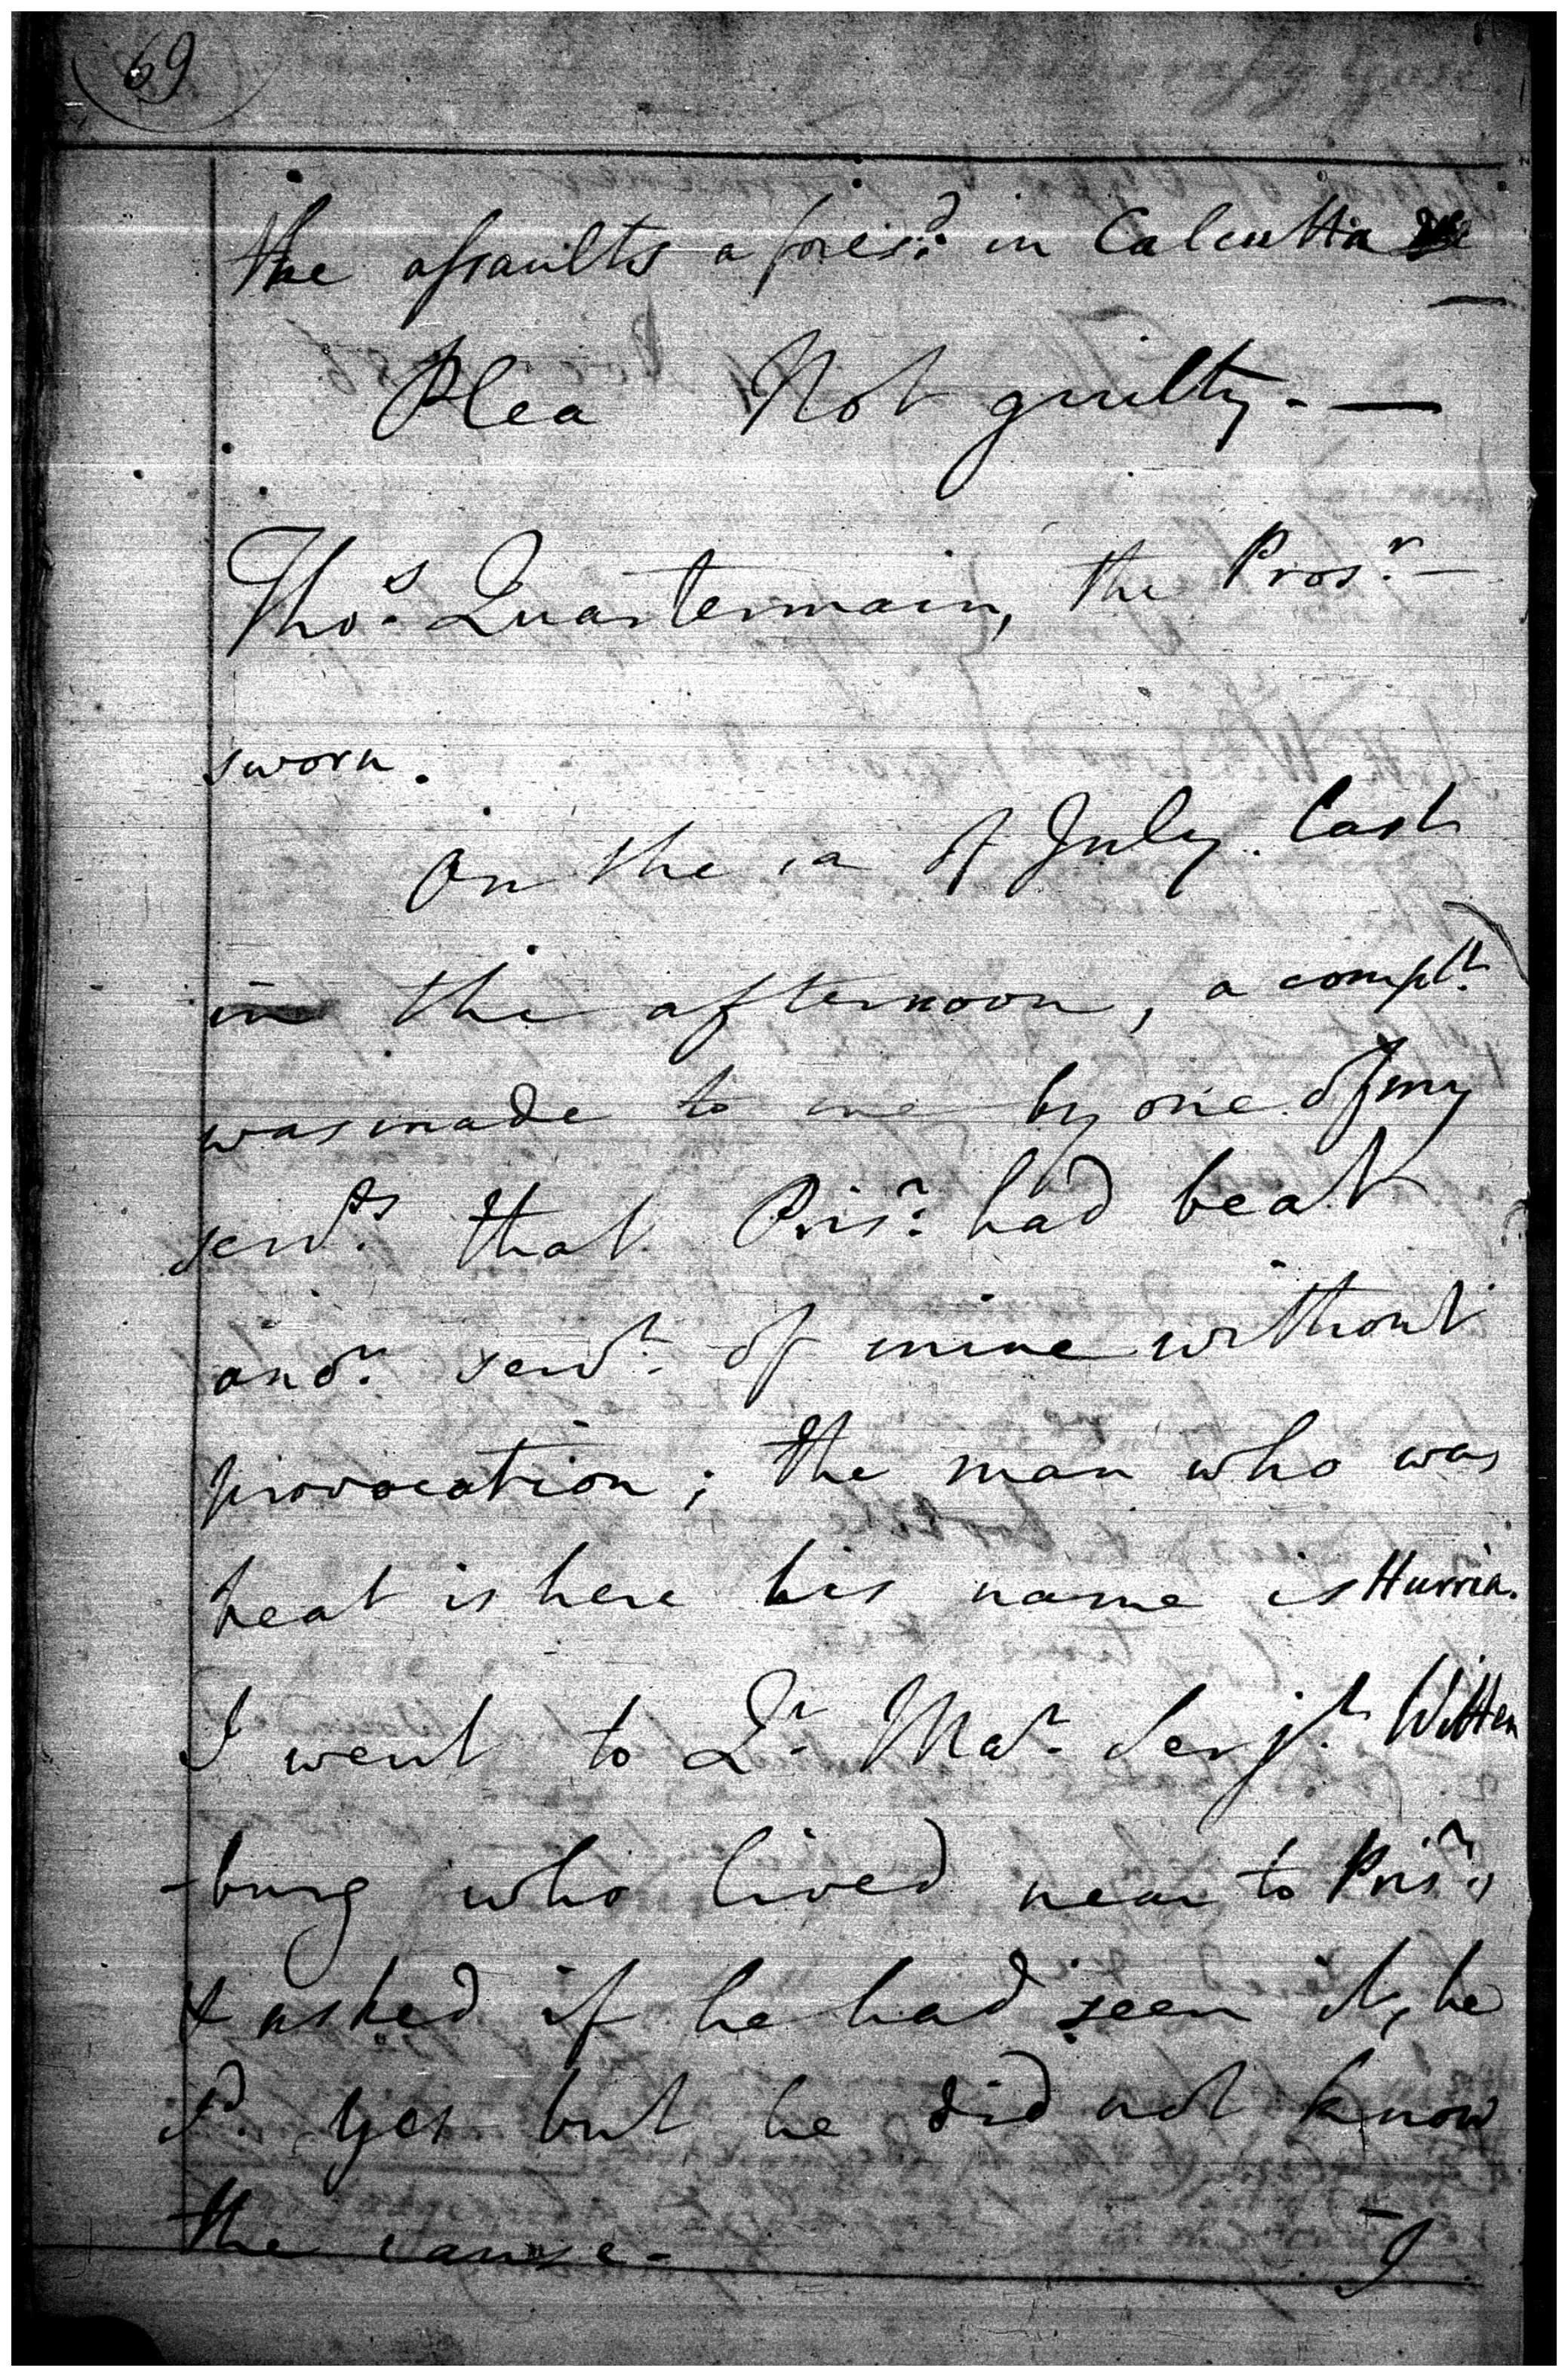 69
the assaults aforesd. in Calcutta
Plea Not guilty. —
Thos. Quartermain, the Prosr. —
sworn.
On the of July last
in the afternoon, a complt.
was made to me by one of my
servts. that Prisr. had beat
anor. servt. of mine without
provocation; the man who was
beat is here his name is Hurria.
I went to Qr. Mar. Serjt. Witten
-burg who lived near to Prisr.,
& asked if he had seen it, he
sd. yes but he did not know
the cause. —
I